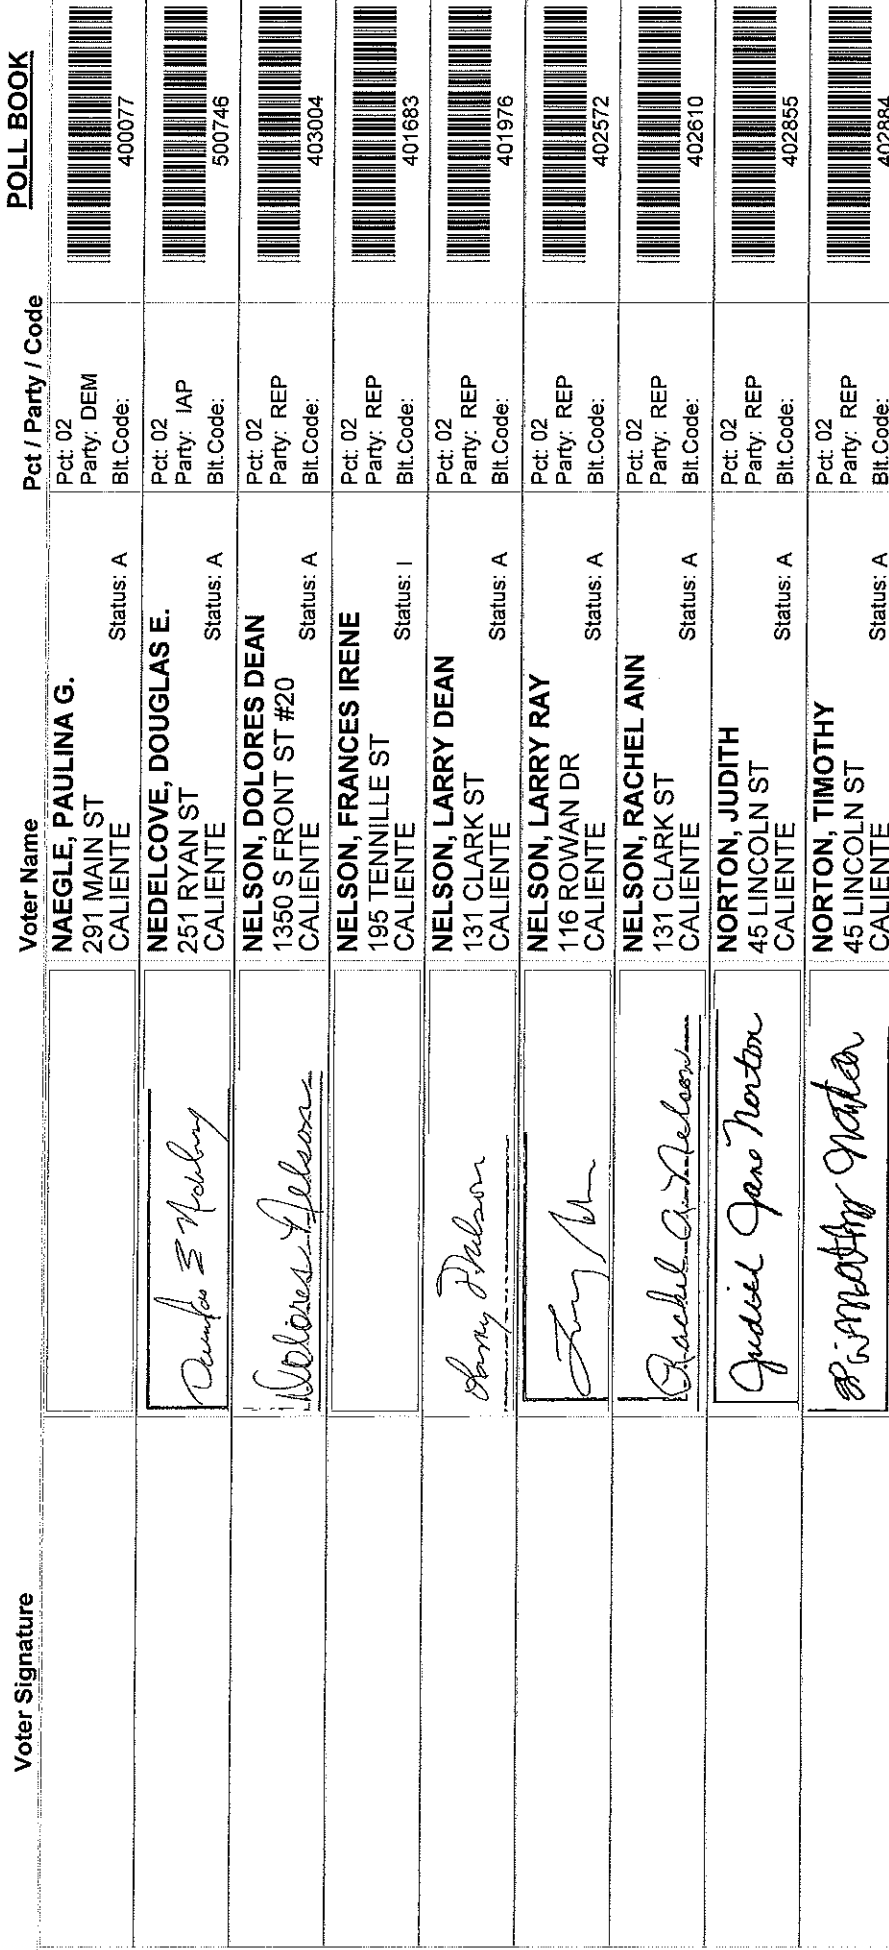 POLL BOOK
Voter Signature
Voter Name
Pct / Party / Code
NAEGLE, PAULINA G.
291 MAIN ST
CALIENTE
Status: A
Pct: 02
Party: DEM
Blt.Code:
400077
Douglas E
NEDELCOVE, DOUGLAS E.
251 RYAN ST
CALIENTE
Status: A
Pct: 02
Party: IAP
Blt.Code:
500746
Dolores Nelson
NELSON, DOLORES DEAN
1350 S FRONT ST #20
CALIENTE
Status: A
Pct: 02
Party: REP
Blt.Code:
403004
NELSON, FRANCES IRENE
195 TENNILLE ST
CALIENTE
Status: I
Pct: 02
Party: REP
Blt.Code:
401683
Larry D Nelson
NELSON, LARRY DEAN
131 CLARK ST
CALIENTE
Status: A
Pct: 02
Party: REP
Blt.Code:
401976
NELSON, LARRY RAY
116 ROWAN DR
CALIENTE
Status: A
Pct: 02
Party: REP
Blt.Code:
402572
Rachel A. Nelson
NELSON, RACHEL ANN
131 CLARK ST
CALIENTE
Status: A
Pct: 02
Party: REP
Blt.Code:
402610
Judith Jane Norton
NORTON, JUDITH
45 LINCOLN ST
CALIENTE
Status: A
Pct: 02
Party: REP
Blt.Code:
402855
Timothy Norton
NORTON, TIMOTHY
45 LINCOLN ST
CALIENTE
Status: A
Pct: 02
Party: REP
Blt.Code:
402884